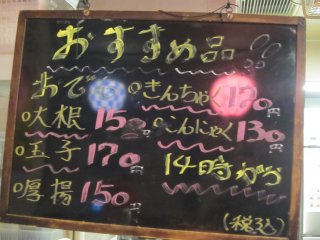 おすすめ品!!
おでん
○大根150円
○玉子170円
○厚揚150円
○きんちゃく170円
○こんにゃく130円
14時から
(税込)